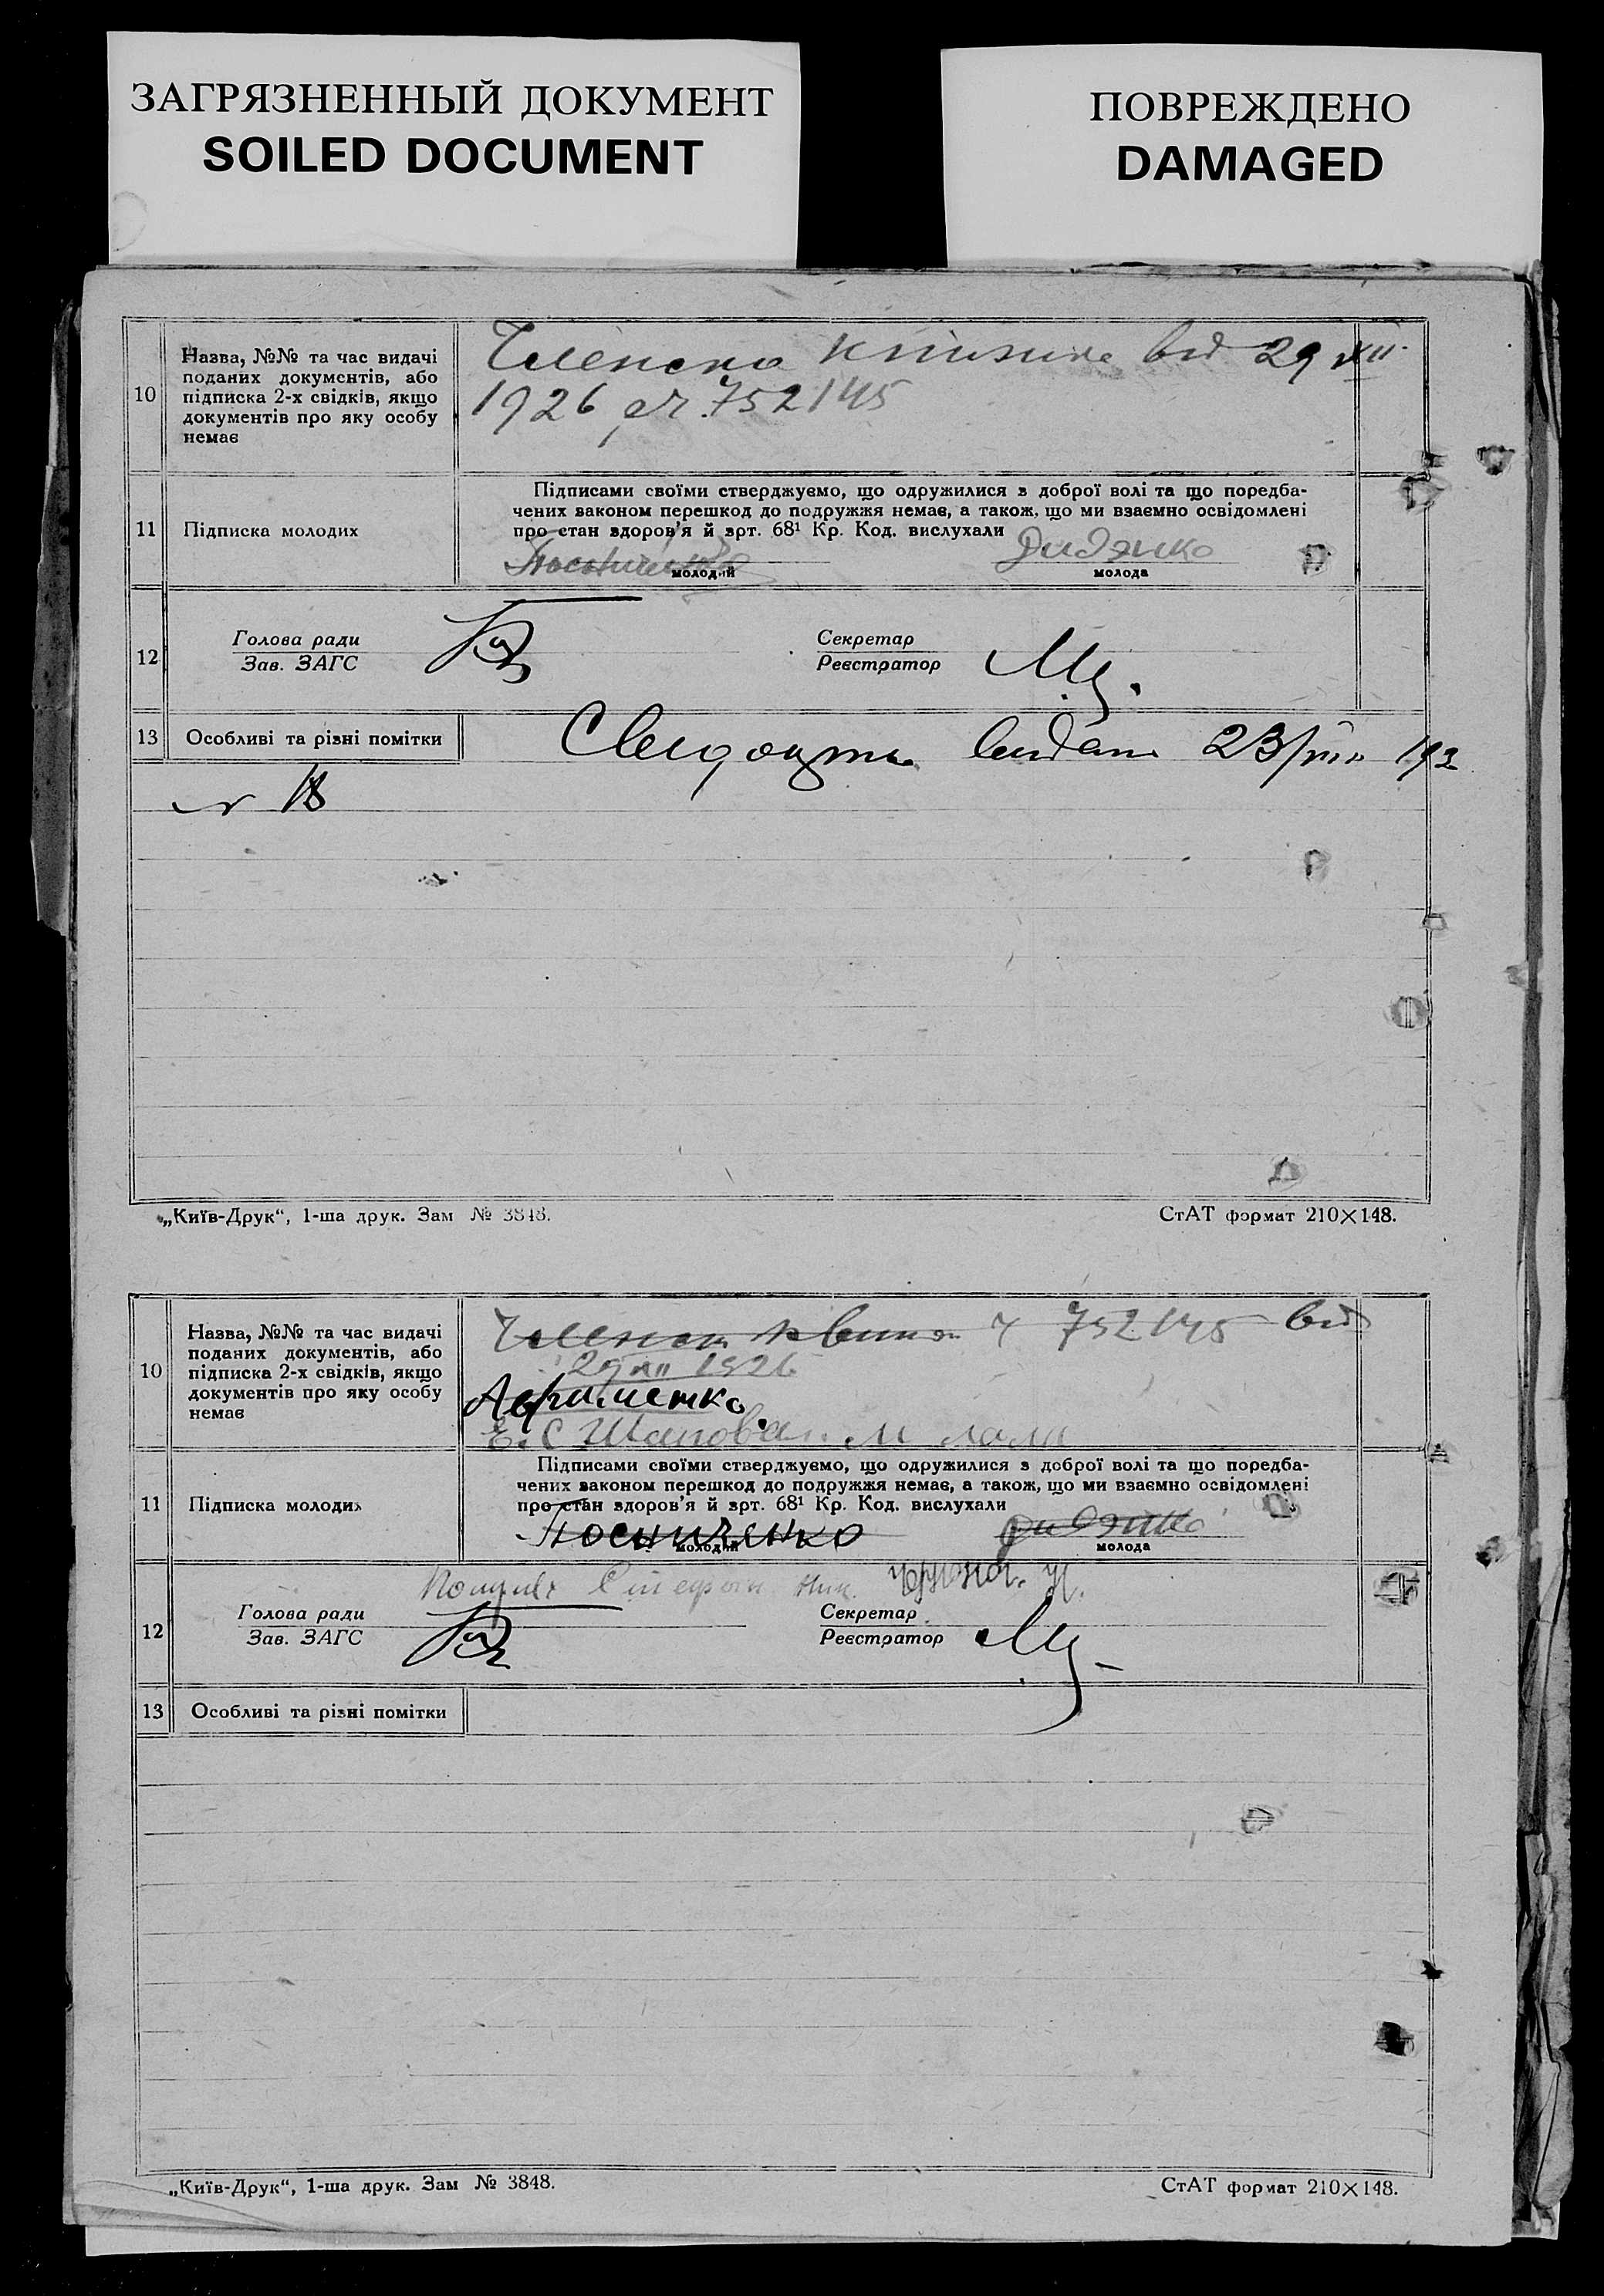 ЗАГРЯЗНЕННЫЙ ДОКУМЕНТ
SOILED DOCUMENT
ПОВРЕЖДЕНО
DAMAGED
10
Назва, №№ та час видачі
поданих документів, або
підписка 2-х свідків, якщо
документів про яку особу
немає
Членска книжка від 29 XII
1926 752145
11
Підписка молодих
Підписами своїми стверджуємо, що одружилися з доброї волі та що поредба-
чених законом перешкод до подружжя немає, а також, що ми взаємно освідомлені
про стан здоров'я й зрт. 68¹ Кр. Код. вислухали
Посниченко
молодий
Диденко
молода
12
Голова ради
Зав. ЗАГС
Секретар
Реєстратор
13
Особливі та різні помітки
видано 23/VIII 192
18
„Київ-Друк“, 1-ша друк. Зам № 3848.
СтАТ формат 210×148.
10
Назва, №№ та час видачі
поданих документів, або
підписка 2-х свідків, якщо
документів про яку особу
немає
752145 від
29 XII 1926
11
Підписка молодих
Підписами своїми стверджуємо, що одружилися з доброї волі та що поредба-
чених законом перешкод до подружжя немає, а також, що ми взаємно освідомлені
про стан здоров'я й зрт. 68¹ Кр. Код. вислухали
Посниченко
молодий
Диденко
молода
12
Голова ради
Зав. ЗАГС
Секретар
Реєстратор
13
Особливі та різні помітки
„Київ-Друк“, 1-ша друк. Зам № 3848.
СтАТ формат 210×148.